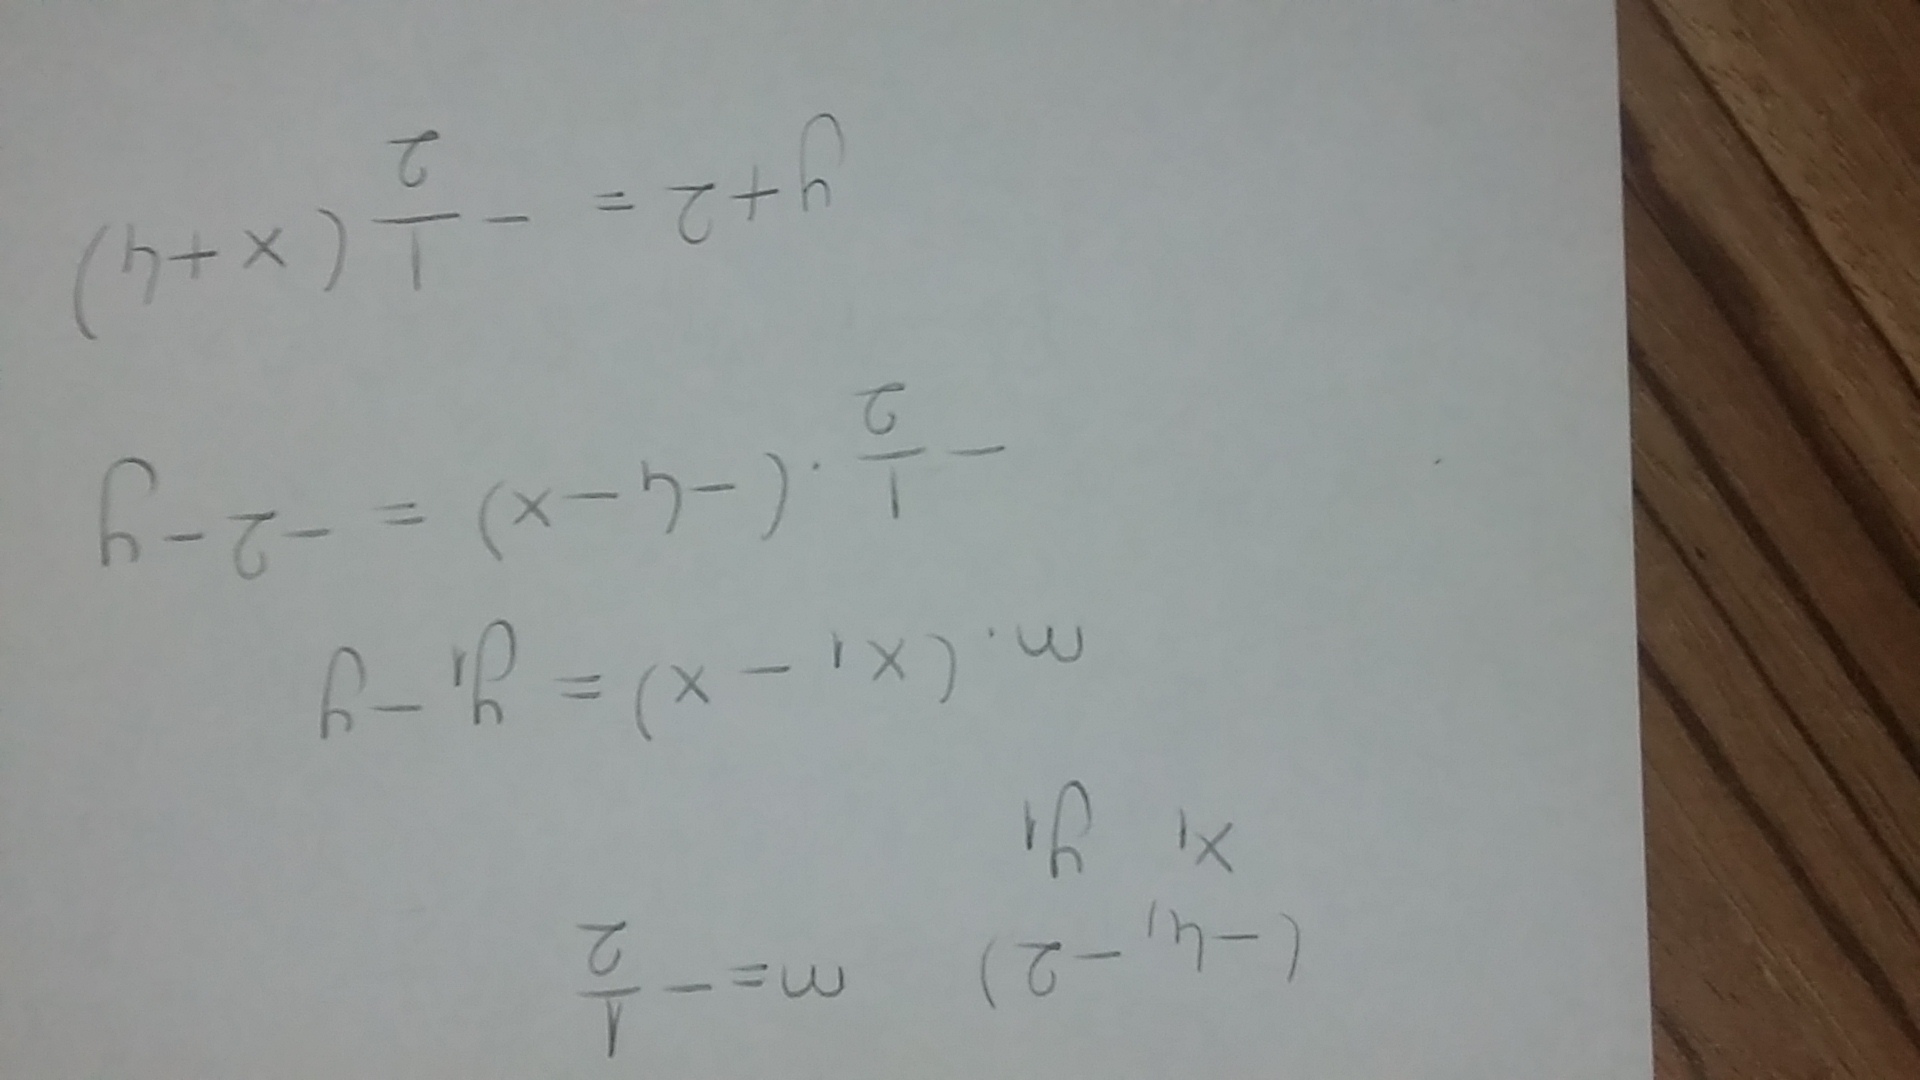 (-4, -2) m = -1/2
x₁ y₁
m · (x₁ - x) = y₁ - y
-1/2 · (-4 - x) = -2 - y
y + 2 = -1/2 (x + 4)